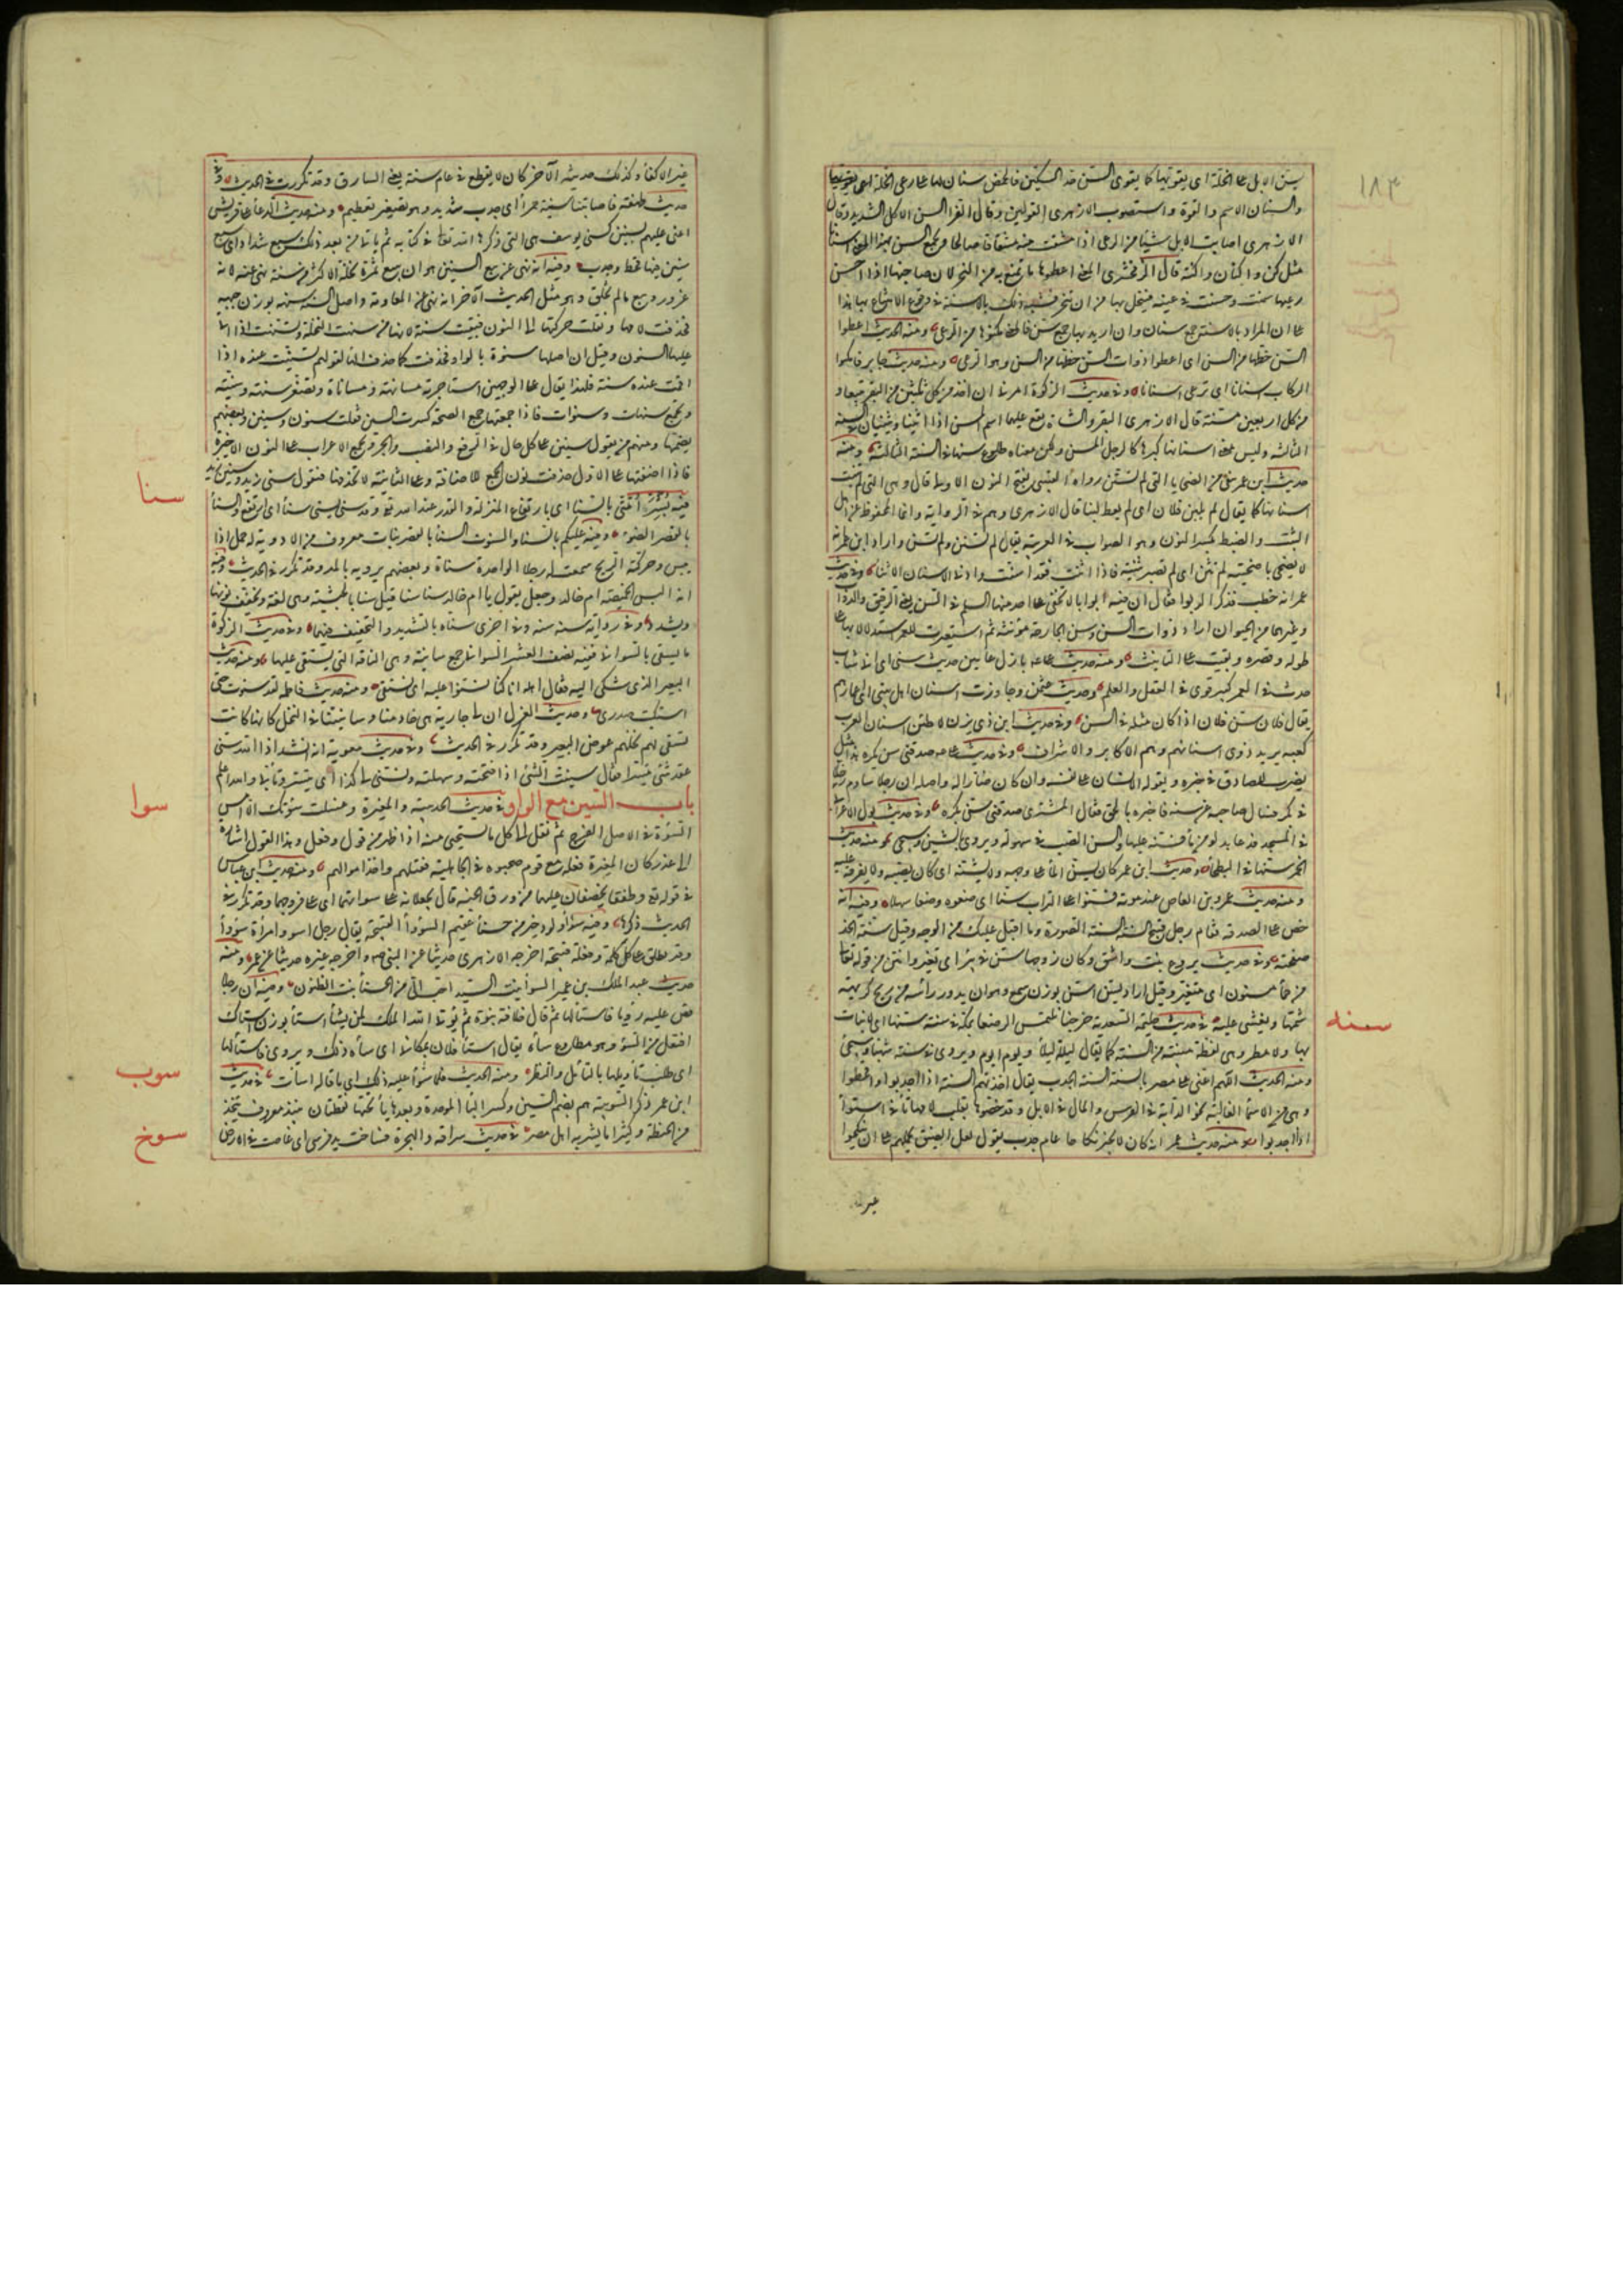 ١٨٣
يسن الابل على الخلة اى يقويها كما يقوى السن حد السكين فالحمض سنان لها على رعى الخلة
والسنان الاسم والقوة واستصوب الازهرى القولين وقال الفرا السن الاكل الشديد وقال
الازهرى اصابت الابل سنا من الرعى اذا مشقت منه مشقا صالحا ويجمع السن بهذا المعنى اسنانا
مثل كن واكنان واكنة قال الزمخشرى المعنى اعطوها ما تمتنع به من النحر لان صاحبها اذا احسن
رعيها سمنت وحسنت فى عينه فيبخل بها من ان تنحر فشبه ذلك بالاسنة فى وقوع الامتناع بها هذا
على ان المراد بالاسنة جمع سنان وان اريد بها جمع سن فالمعنى امكنوها من الرعى ومنه الحديث اعطوا
السن حظها من السن اى اعطوا ذوات السن حظها من السن وهو الرعى ومنه حديث جابر فامكنوا
الركاب اسنانا اى ترعى اسنانا وفى حديث الزكوة امرنا ان اخذ من كل ثلثين من البقر تبيعا و
من كل اربعين مسنة قال الازهرى البقر والشاة يقع عليهما اسم المسن اذا اثنيا ويثنيان فى السنة
الثالثة وليس معنى اسنانها كبرها كالرجل المسن ولكن معناه طلوع سنها فى السنة الثالثة ومنه
حديث ابن عمر ينفى من الضحايا التى لم تسنن رواه القتيبى بفتح النون الاولى قال وهى التى لم تنبت
اسنانها كما يقال لم يلبن فلان اى لم يعط لبنا قال الازهرى وهم فى الرواية وانما المحفوظ عن اهل
الثبت والضبط بكسر النون وهو الصواب فى العربية يقال لم تسنن ولم تسن واراد ابن عمر انه
لا يضحى باضحية لم تثن اى لم تصر ثنية فاذا اثنت فقد اسنت وادنى الاسنان الاثنا وفى حديث
عمر انه خطب فذكر الربوا فقال ان فيه ابوابا لا تخفى على احد منها السلم فى السن يعنى الرقيق والدواب
وغيرهما من الحيوان اراد ذوات السن وسن الجارحة مؤنثة ثم استعيرت للعمر استدلالا بها على
طوله وقصره وبقيت على التانيث ومنه حديث على بازل عامين حديث سنى اى انى شاب
حدث فى العمر كبير قوى فى العقل والعلم وحديث عثمن وجاوزت اسنان اهل بيتى اى اعمارهم
يقال فلان سن فلان اذا كان مثله فى السن وفى حديث ابن ذى يزن لاوطئن اسنان العرب
كعبه يريد ذوى اسنانهم وهم الاكابر والاشراف وفى حديث على صدقنى سن بكره هذا مثل
يضرب للصادق فى خبره ويقوله الانسان على نفسه وان كان ضارا له واصله ان رجلا ساوم رجلا
فى بكر فسال صاحبه عن سنه فاخبره بالحق فقال المشترى صدقنى سن بكره وفى حديث بول الاعرابى
فى المسجد فدعا بدلو من ماء فسنه عليها والسن الصب فى سهولة ويروى بالشين وسيجى ومنه حديث
الخمر سنها فى البطحاء وحديث ابن عمر كان يسن الماء على وجهه ولا يشنه اى كان يصبه ولا يفرقه عليه
ومنه حديث عمرو بن العاص عند موته فسنوا على التراب سنا اى ضعوه وضعا سهلا وفيه انه
حض على الصدقة فقام رجل قبيح السنة السنة الصورة وما اقبل عليك من الوجه وقيل سنة الخد
صفحته وفى حديث بروع بنت واشق وكان زوجها سن فى بئر اى تغير وانتن من قوله تعالى
من حمأ مسنون اى متغير وقيل اراد بسن اسن بوزن سمع وهو ان يدور رأسه من ريح كريهة
شمها ويغشى عليه فى حديث حليمة السعدية خرجنا نلتمس الرضعا بمكة فى سنة سنها اى لا نبات
بها ولا مطر وهى لفظة مبنية من السنة كما يقال ليلة ليلاء ويوم ايوم ويروى فى سنة شهباء وسيجئ
ومنه الحديث اللهم اعنى على مضر بالسنة السنة الجدب يقال اخذتهم السنة اذا اجدبوا واقحطوا
وهى من الاسماء الغالبة نحو الدابة فى الفرس والمال فى الابل وقد خصوها بقلب لامها تاء فى اسنتوا
اذا اجدبوا ومنه حديث عمر انه كان لا يجيز نكاحا عام سنة اى عام جدب يقول لعل الضيق يحملهم على ان ينكحوا
غير
سنه
غير الاكفاء وكذلك حديثه الآخر كان لا يقطع فى عام سنة يعنى السارق وقد تكررت فى الحديث وفى
حديث طهفة فاصابتنا سنية حمراء اى جدب شديد وهو تصغير تعظيم ومنه حديث الدعاء على قريش
اعنى عليهم بسنين كسنى يوسف هى التى ذكرها الله تعالى فى كتابه ثم ياتى من بعد ذلك سبع شداد اى سبع
سنين فيها قحط وجدب وفيه انه نهى عن بيع السنين هو ان يبيع ثمرة نخلة لاكثر من سنة نهى عنه لانه
غرر وبيع ما لم يخلق وهو مثل الحديث الآخر انه نهى عن المعاومة واصل السنة سنهة بوزن جبهة
فحذفت لامها ونقلت حركتها الى النون فبقيت سنة لانها من سنهت النخلة وتسنهت اذا اتى
عليها السنون وقيل ان اصلها سنوة بالواو فحذفت كما حذفت الهاء لقولهم تسنيت عنده اذا
اقمت عنده سنة فلهذا يقال على الوجهين استاجرته مسانهة ومساناة وتصغر سنيهة وسنية
وتجمع سنهات وسنوات فاذا جمعتها جمع الصحة كسرت السين فقلت سنون وسنين وبعضهم
يضمها ومنهم من يقول سنين على كل حال فى الرفع والنصب والجر ويجعل الاعراب على النون الاخيرة
فاذا اضفتها على الاول حذفت نون الجمع للاضافة وعلى الثانية لا تحذفها فتقول سنى زيد وسنين زيد
سنا
فيه بشر امتى بالسناء اى بارتفاع المنزلة والقدر عند الله تعالى وقد سنى يسنى سناء اى ارتفع والسنا
بالقصر الضوء وفيه عليكم بالسنا والسنوت السنا بالقصر نبات معروف من الادوية له حمل اذا
يبس وحركته الريح سمعت له زجلا الواحدة سناة وبعضهم يرويه بالمد وقد تكرر فى الحديث وفيه
انه البس الخميصة ام خالد وجعل يقول يا ام خالد سنا سنا قيل سنا بالحبشية وهى لغة وتخفف نونها
وتشدد وفى رواية سنه سنه وفى اخرى سناه بالتشديد والتخفيف فيهما وفى حديث الزكوة
ما يسقى بالسوانى ففيه نصف العشر السوانى جمع سانية وهى الناقة التى يستقى عليها ومنه حديث
البعير الذى شكى اليه فقال اهله انا كنا نسنو عليه اى نستقى ومنه حديث فاطمة لقد سنوت حتى
اشتكيت صدرى وحديث العزل ان لى جارية هى خادمنا وسانيتنا فى النخل كانها كانت
تسقى لهم نخلهم عوض البعير وقد تكرر فى الحديث وفى حديث معوية انه انشد اذا الله سنى
عقد شئ تيسرا يقال سنيت الشئ اذا فتحته وسهلته وتسنى لى كذا اى تيسر وتأتى والله اعلم
سوا
باب السين مع الواو فى حديث الحديبية والمغيرة وهل غسلت سوأتك الا امس
السوأة فى الاصل الفرج ثم نقل الى كل ما يستحيى منه اذا ظهر من قول وفعل وهذا القول اشارة
الى غدر كان المغيرة فعله مع قوم صحبوه فى الجاهلية فقتلهم واخذ اموالهم ومنه حديث ابن عباس
فى قوله تع وطفقا يخصفان عليهما من ورق الجنة قال يجعلانه على سوآتهما اى على فروجهما وقد تكرر فى
الحديث ذكرها وفيه سوآء ولود خير من حسناء عقيم السوآء القبيحة يقال رجل اسوء وامرأة سوآء
وقد يطلق على كل كلمة وفعلة قبيحة اخرجه الازهرى حديثا عن النبى صم واخرجه غيره حديثا عن عمر ومنه
حديث عبد الملك بن عمير السوآء بنت السيد احب الى من الحسناء بنت الظنون وفيه ان رجلا
قص عليه رؤيا فاستاء لها ثم قال خلافة نبوة ثم يؤتى الله الملك لمن يشاء استاء بوزن استاك
افتعل من السوء وهو مطاوع ساء يقال استاء فلان بمكانى اى ساءه ذلك ويروى فاستآلها
اى طلب تأويلها بالتأمل والنظر ومنه الحديث فما سوأ عليه ذلك اى ما قال له اسأت
سوب
فى حديث
ابن عمر ذكر السوبية هى بضم السين وكسر الباء الموحدة وبعدها ياء تحتها نقطتان نبيذ معروف يتخذ
من الحنطة وكثيرا ما يشربه اهل مصر
سوخ
فى حديث سراقة والهجرة فساخت يد فرسى اى غاصت فى الارض